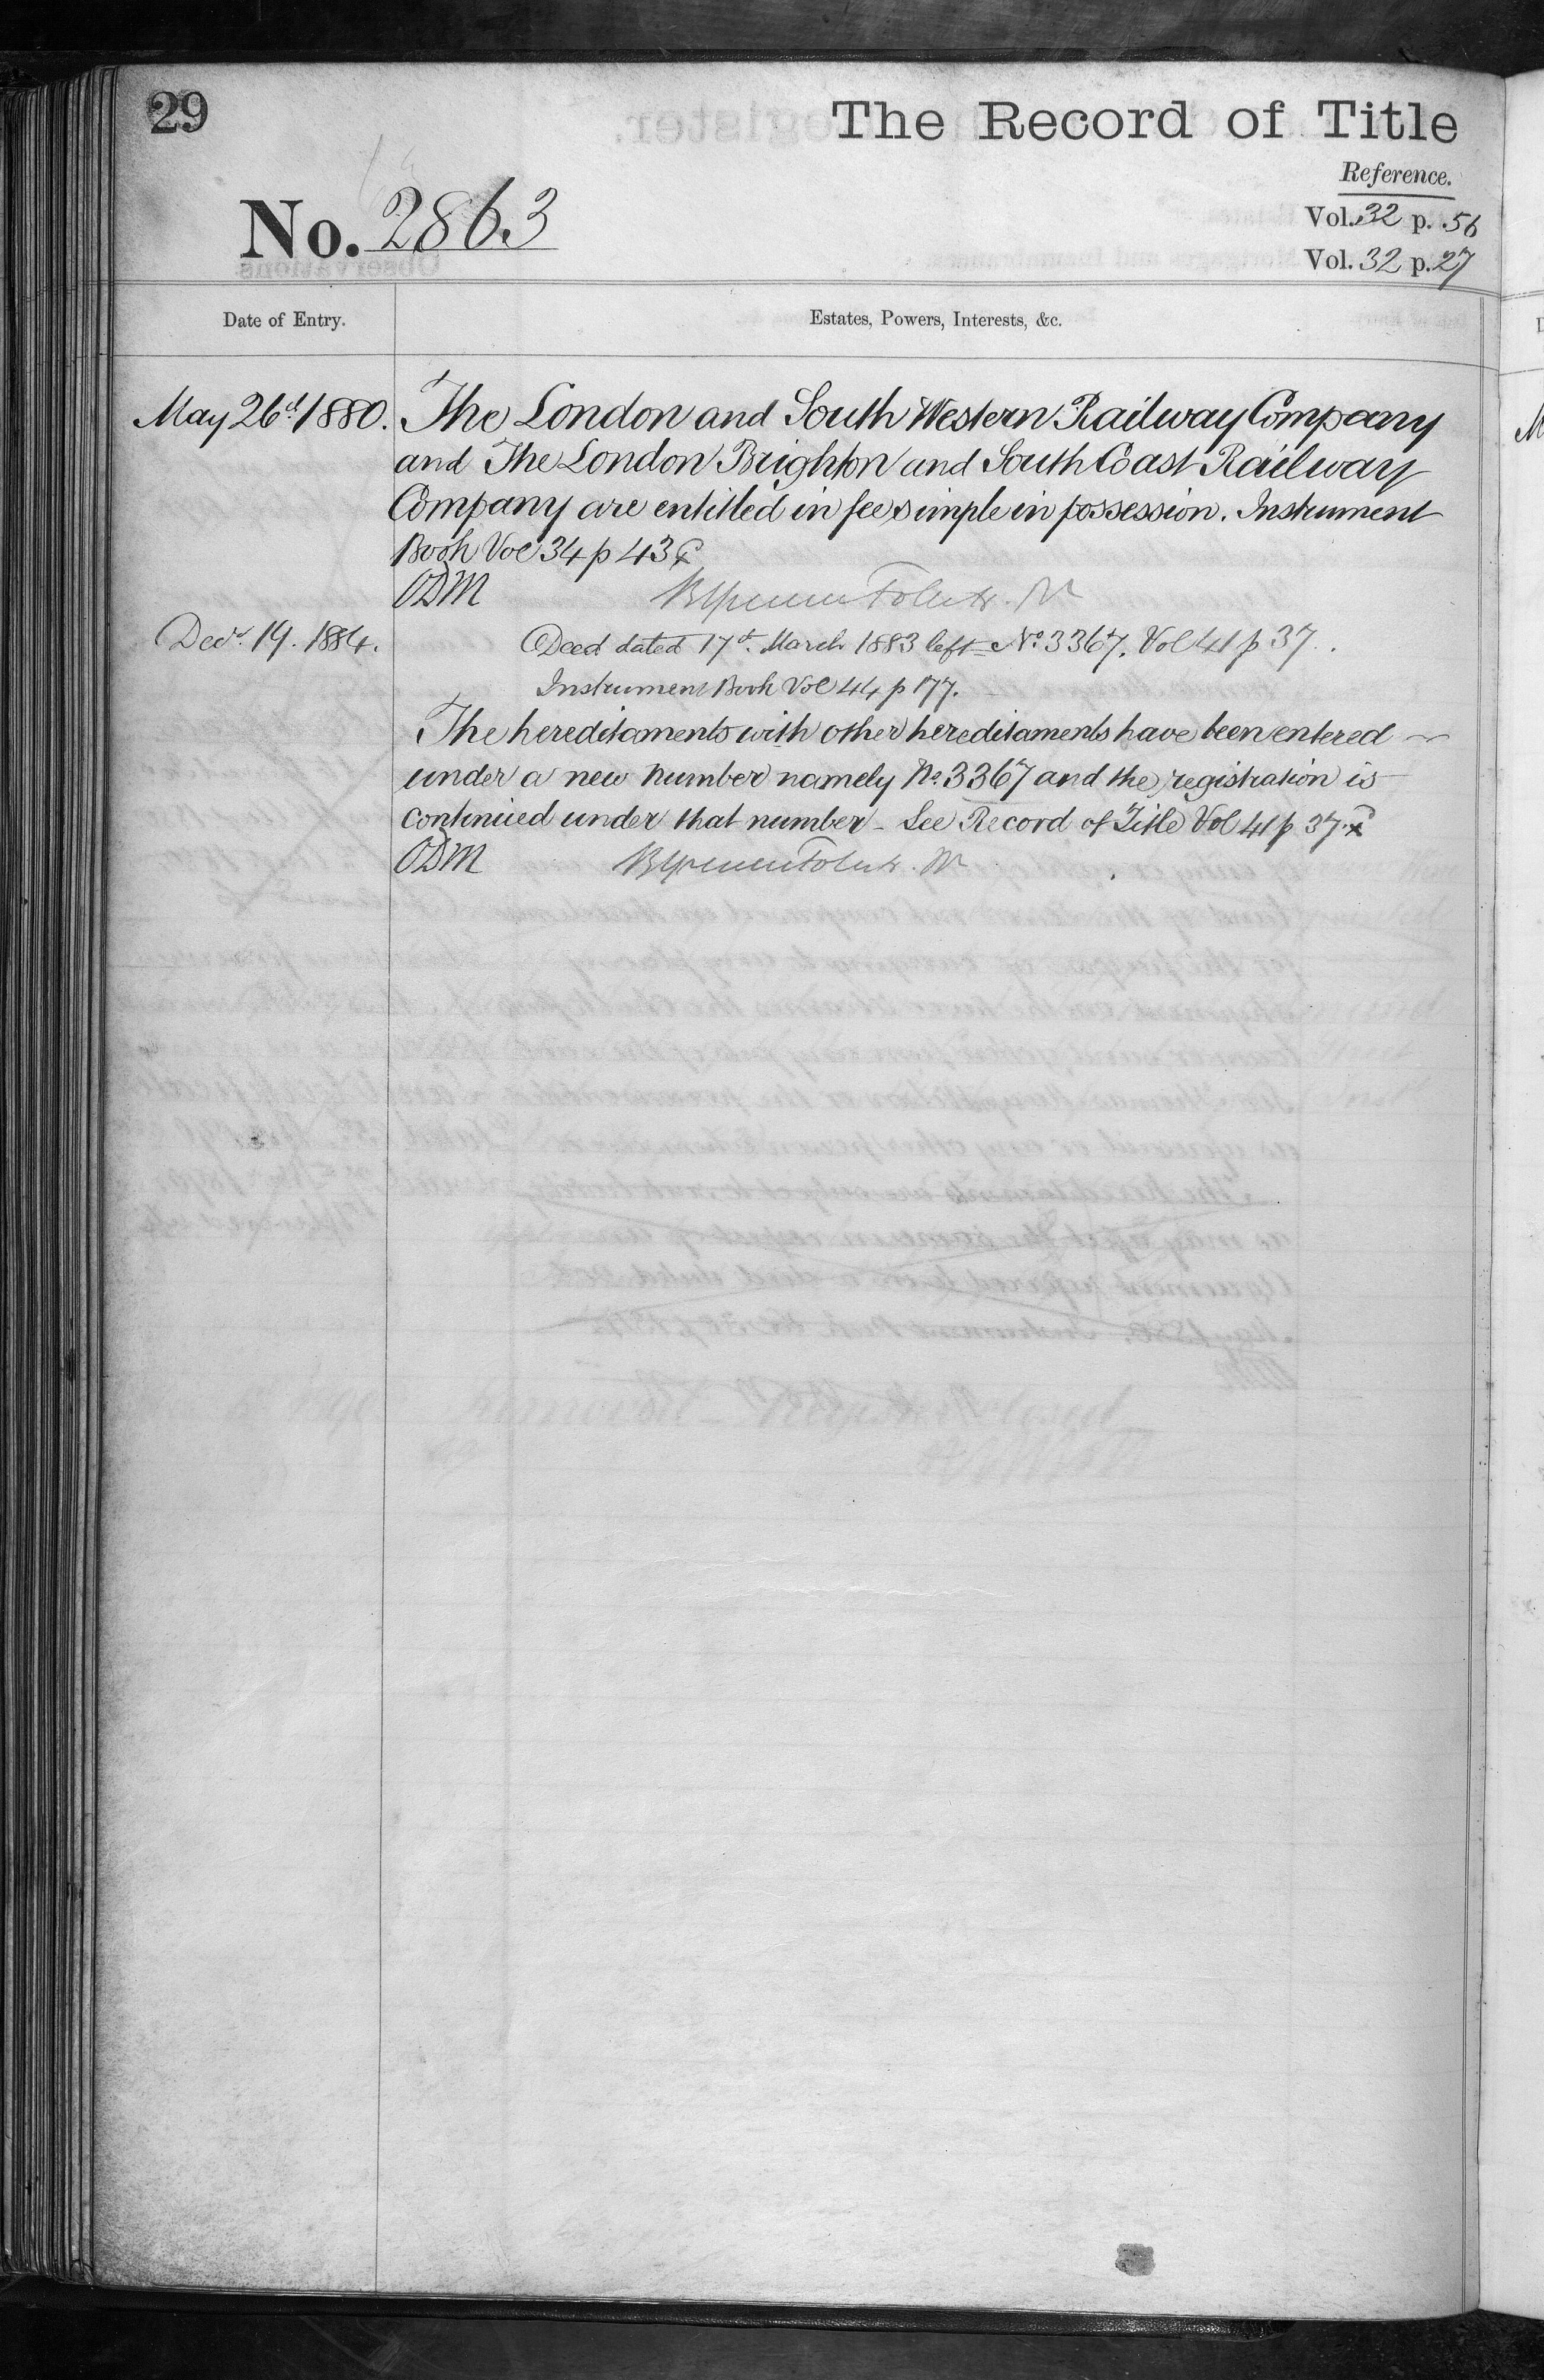 29
The Record of Title
Reference.
No. 2863
Vol. 32 p. 56
Vol. 32 p. 27
Date of Entry.
Estates, Powers, Interests, &c.
May 26th 1880. The London and South Western Railway Company
and The London Brighton and South Coast Railway
Company are entitled in fee simple in possession. Instrument
Book Vol 34 p 43
ODM
Decr 19. 1884. Deed dated 17th March 1883 left No 3367. Vol 41 p 37.
Instrument Book Vol 44 p 177.
The hereditaments with other hereditaments have been entered
under a new number namely No. 3367 and the registration is
continued under that number - See Record of Title Vol 41 p 37.
ODM